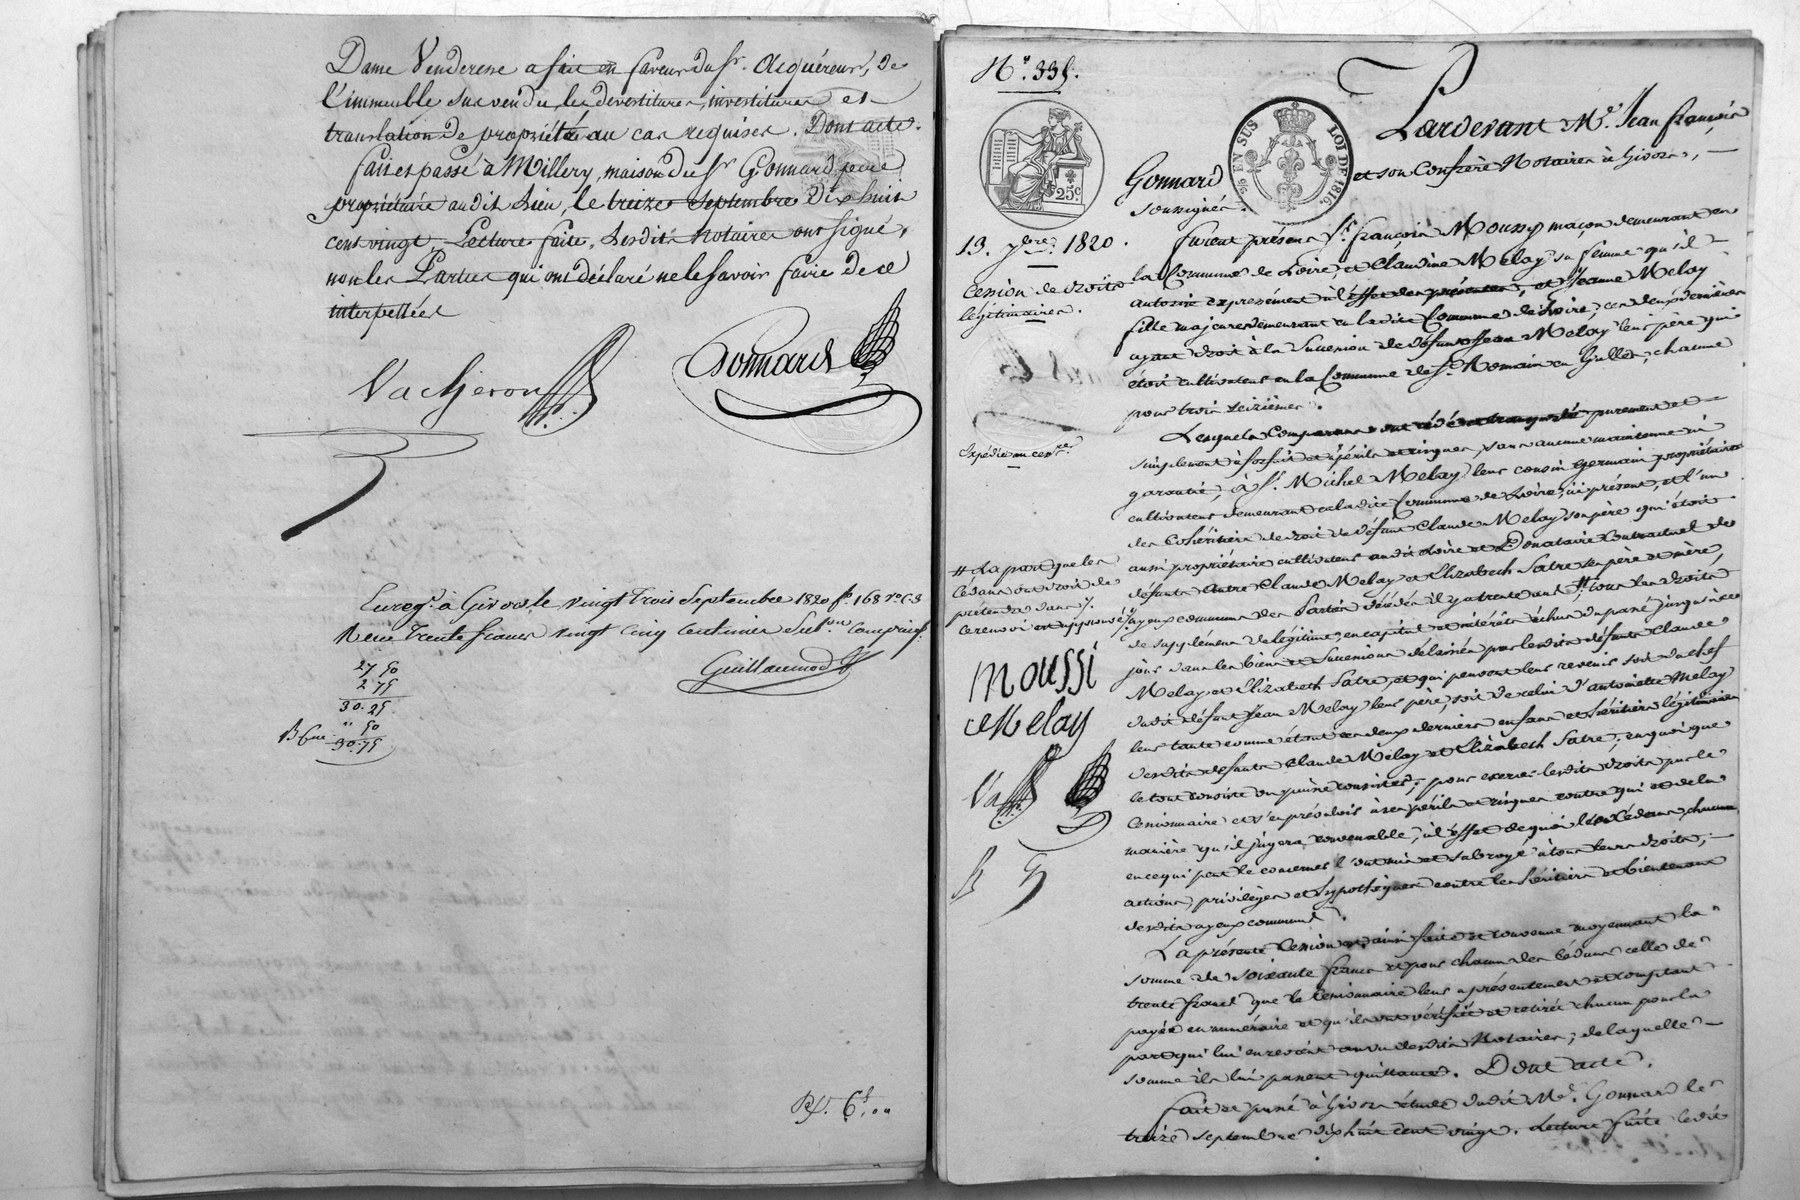 Dame Venderesse a fait en faveur du Sr. Acquéreur, de
l'immeuble sus vendu, les devestitures, investitures et
translation de propriété au cas requises. Dont acte.
fait et passé à Millery, maison du Sr Gonnard père
propriétaire audit Lieu, le treize Septembre Dix huit
cent vingt, Lecture faite, Lesdits Notaires ont signé,
non les Parties qui ont déclaré ne le savoir faire de ce
interpellées
Vacheron
Gonnard
Enregé. à Givors le vingt trois Septembre 1820 fo. 168 vo. C. 8
Reçu Trente francs vingt cinq centimes Subon. compris
Guillaumod
27 50
2.75
30.25
" 50
30.75
No. 335.
25c.
EN SUS
LOI DE 1816.
Pardevant Me. Jean François
Gonnard et son Confrère Notaires à Givors, —
soussignés.
13. 7bre. 1820.
Cession de droits
légitimaires.
furent présens Sr. françois Moussy maçon demeurant en
la Commune de Loire, et Claudine Melay sa femme qu'il —
autorise expressément à l'effet des présentes, et Jeanne Melay
fille majeure demeurant en la dite Commune de Loire, ces deux dernières
ayant droit à la Succession de défunt Jean Melay leur père qui
étoit cultivateur en la Commune de St. Romain en Galles, chacune
pour trois seizièmes.
Expédié au cessre.
Lesquels Comparans ont cédé et transporté purement et —
simplement à forfait et périls et risques, sans aucune maintenue ni
garantie, à Sr. Michel Melay leur cousin germain propriétaire
cultivateur demeurant en la dite Commune de Loire, ici présent, et l'un
des Cohéritiers de droit de défunt Claude Melay son père qui étoit
aussi propriétaire cultivateur audit Loire et Donataire Contractuel de
défunts autre Claude Melay et Elizabeth Satre ses père et mère,
ayeux communs des Parties décédés il y a trente ans # tous les droits
# La part que les
cédans ont droit de
prétendre dans
ce renvoi est approuvé
de supplément de légitime, en capital et intérêts échus du passé jusqu'à ce
jour dans les biens et Successions délaissés par lesdits défunts Claude
Melay et Elizabeth Satre, et qui peuvent leur revenir soit du chef
dudit défunt Jean Melay leur père, soit de celui d'antoinette Melay
leur tante comme étant ces deux derniers enfans et héritiers légitimaires
desdits défunts Claude Melay et Elizabeth Satre; en quoi que
le tout consiste ou puisse consister; pour exercer lesdits droits par le
Cessionnaire et s'en prévaloir à ses périls et risques contre qui et de la
manière qu'il jugera convenable, à l'effet de quoi les Cédans chacun
en ce qui peut le concerner l'ont mis et subrogé à tous leurs droits, —
actions, privilèges et hypothèques contre les héritiers et bientenant
desdits ayeux communs.
Moussi
CMelay
La présente Cession est ainsi faite et convenue moyennant la
somme de soixante francs et pour chacun des Cédans celle de
trente francs que le Cessionnaire leur a présentement et comptant
payée en numéraire et qu'ils ont vérifiée et retirée chacun pour la
part qui lui en revient au vu desdits Notaires; de laquelle —
somme ils lui passent quittance. Dont acte.
fait et passé à Givors étude dudit Me. Gonnard le
treize septembre dix huit cent vingt. Lecture faite ledit